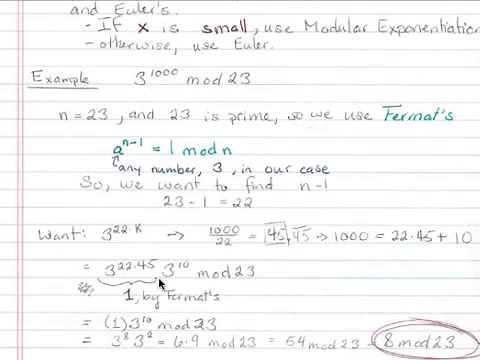 and Euler's.
- If x is small, use Modular Exponentiation
- otherwise, use Euler.
Example 3^1000 mod 23
n = 23, and 23 is prime, so we use Fermat's
a^n-1 = 1 mod n
any number, 3, in our case
So, we want to find n-1
23 - 1 = 22
Want: 3^22·K → 1000/22 = 45.45 → 1000 = 22·45 + 10
= 3^22·45 3^10 mod 23
1, by Fermat's
= (1)3^10 mod 23
= 3^8 3^2 = 6·9 mod 23 = 54 mod 23 = 8 mod 23